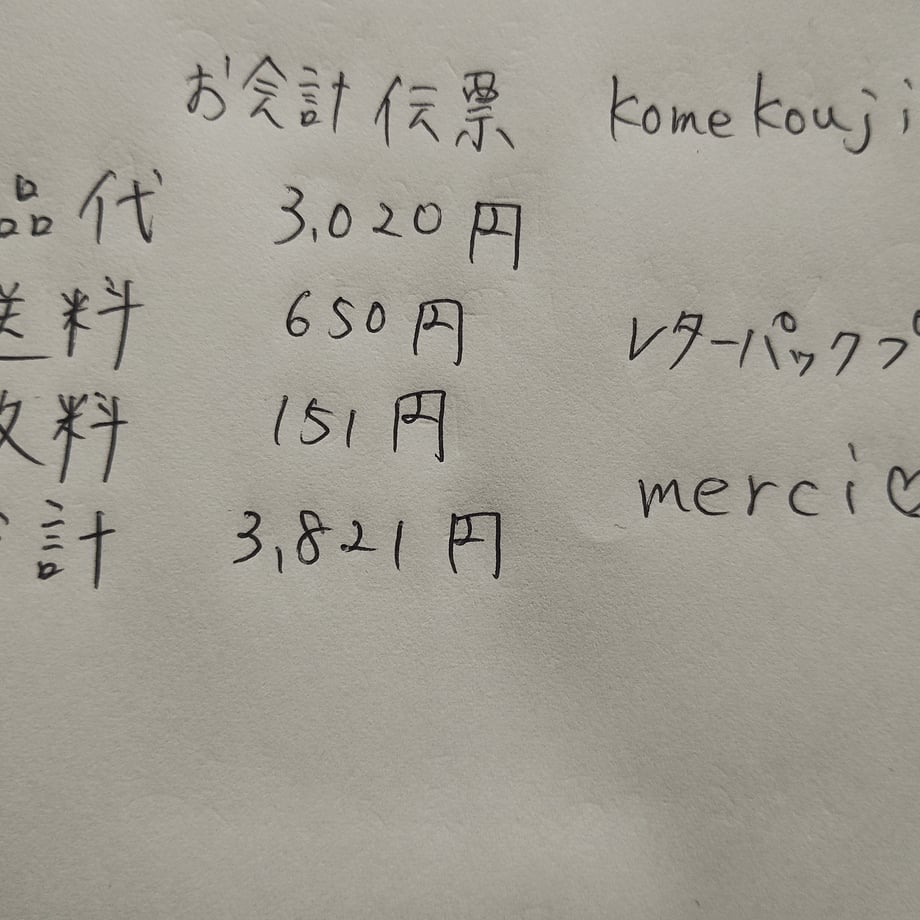 お会計伝票 komekouji
品代 3,020円
送料 650円 レターパックプ
料 151円
計 3,821円 merci♡